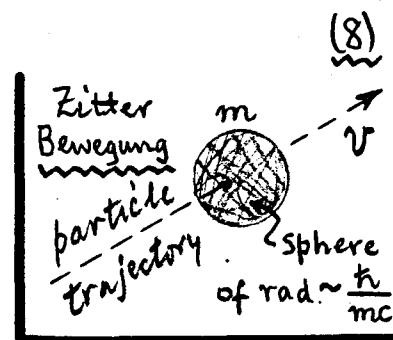 (8)
Zitter
Bewegung
m
v
particle
trajectory
sphere
of rad. ~ ħ/mc